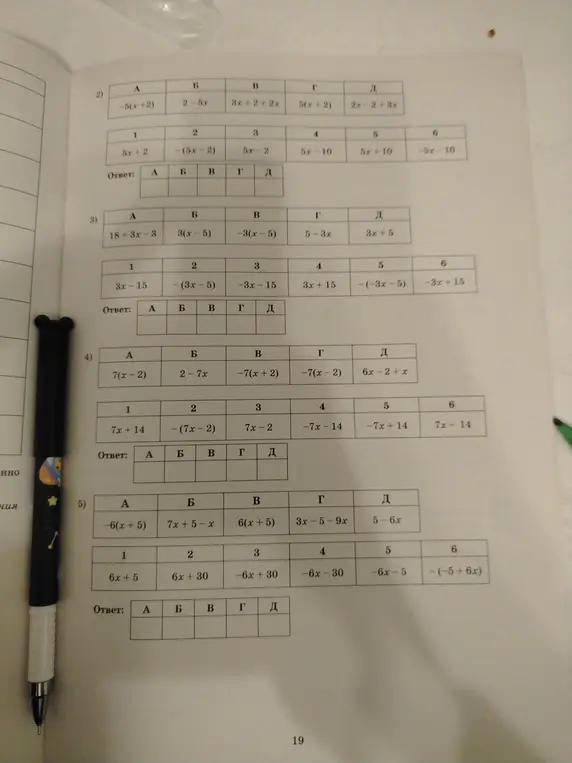 2)
А Б В Г Д
−5(x+2) 2 − 5x 3x + 2 + 2x 5(x + 2) 2x − 2 + 3x
1 2 3 4 5 6
5x + 2 −(5x − 2) 5x − 2 5x − 10 5x + 10 −5x − 10
Ответ: А Б В Г Д
3)
А Б В Г Д
18 + 3x − 3 3(x − 5) −3(x − 5) 5 − 3x 3x + 5
1 2 3 4 5 6
3x − 15 −(3x − 5) −3x − 15 3x + 15 −(−3x − 5) −3x + 15
Ответ: А Б В Г Д
4)
А Б В Г Д
7(x − 2) 2 − 7x −7(x + 2) −7(x − 2) 6x − 2 + x
1 2 3 4 5 6
7x + 14 −(7x − 2) 7x − 2 −7x − 14 −7x + 14 7x − 14
Ответ: А Б В Г Д
5)
А Б В Г Д
−6(x + 5) 7x + 5 − x 6(x + 5) 3x − 5 − 9x 5 − 6x
1 2 3 4 5 6
6x + 5 6x + 30 −6x + 30 −6x − 30 −6x − 5 −(−5 + 6x)
Ответ: А Б В Г Д
19